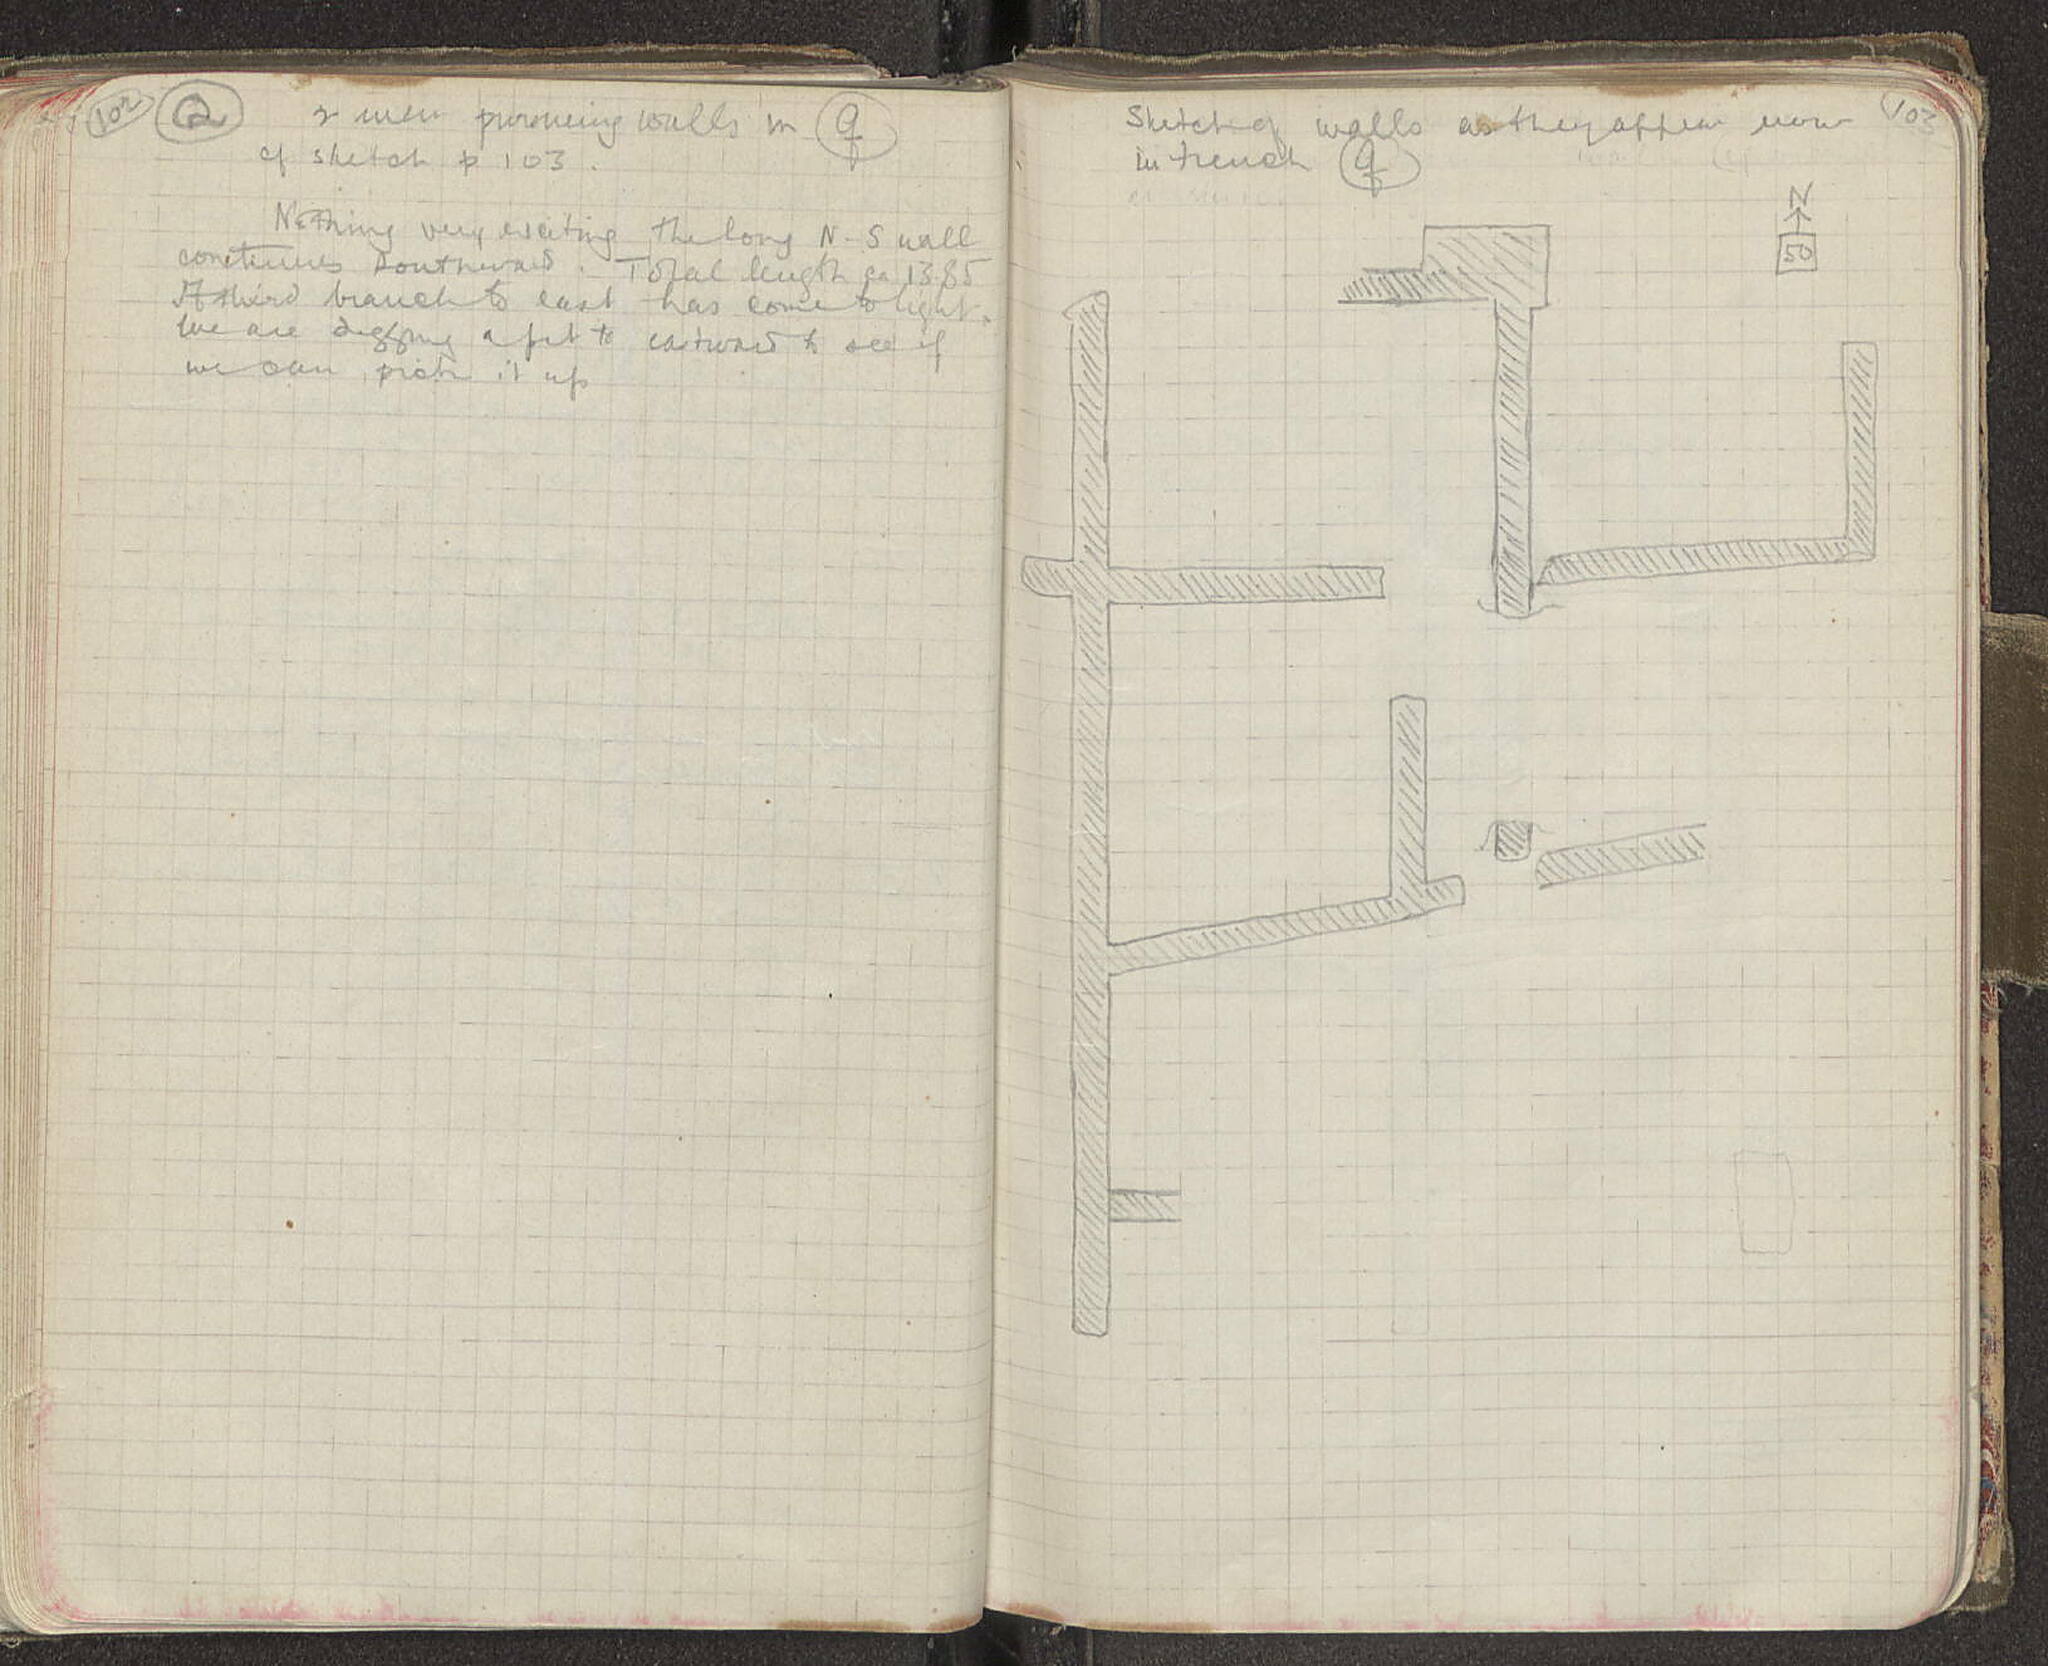 102 Q 2 men pursueing walls in q
cf sketch p 103.
Nothing very exciting the long N-S wall
continues southward. Total length ca 13.85
A third branch to east has come to light.
We are digging a pit to eastward to see if
we can pick it up
103
Sketch of walls as they appear now
in trench q
N
50